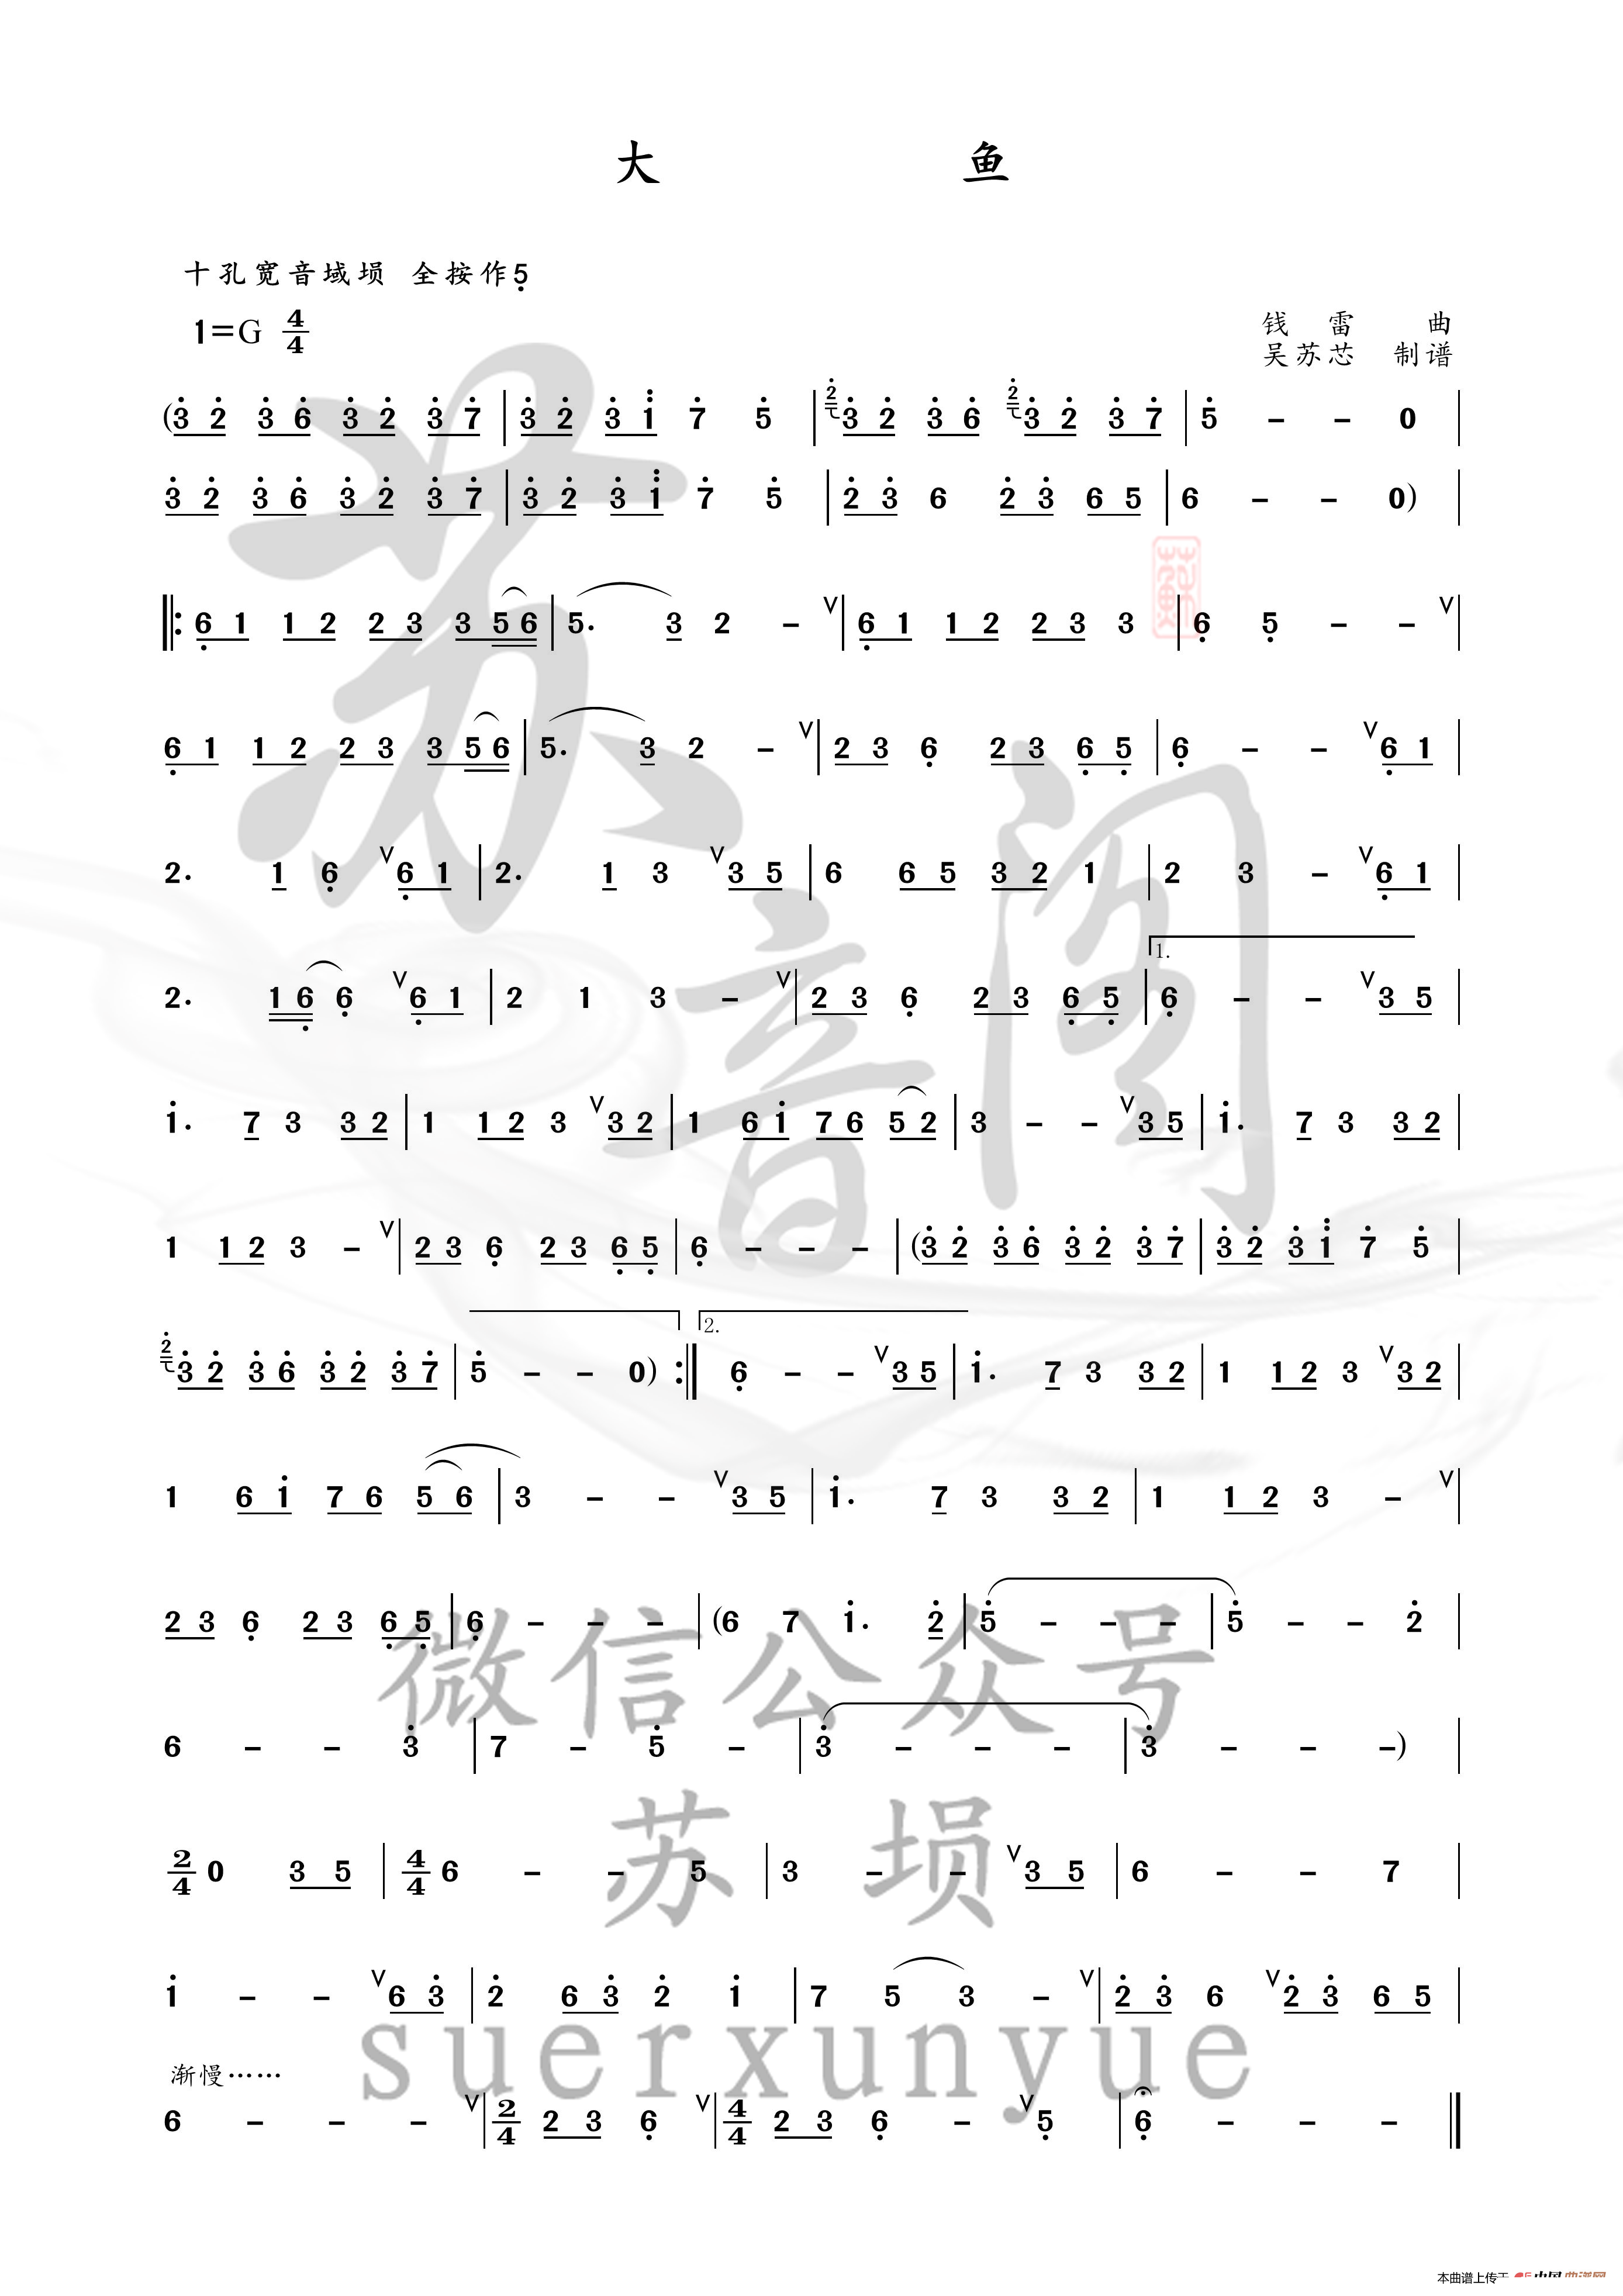 大 鱼
十孔宽音域埙 全按作5̣
1=G 4/4
钱 雷 曲
吴苏芯 制谱
(3̇ 2̇ 3̇ 6̇ 3̇ 2̇ 3̇ 7̇ | 3̇ 2̇ 3̇ 1̈ 7̇ 5̇ | 2̇ 3̇ 2̇ 3̇ 6̇ 2̇ 3̇ 2̇ 3̇ 7̇ | 5̇ - - 0 |
3̇ 2̇ 3̇ 6̇ 3̇ 2̇ 3̇ 7̇ | 3̇ 2̇ 3̇ 1̈ 7̇ 5̇ | 2̇ 3̇ 6 2̇ 3̇ 6 5 | 6 - - 0) |
‖: 6̣ 1 1 2 2 3 3 5 6 | 5. 3 2 - ∨ | 6̣ 1 1 2 2 3 3 | 6̣ 5̣ - - ∨ |
6̣ 1 1 2 2 3 3 5 6 | 5. 3 2 - ∨ | 2 3 6̣ 2 3 6̣ 5̣ | 6̣ - - ∨ 6̣ 1 |
2. 1 6̣ ∨ 6̣ 1 | 2. 1 3 ∨ 3 5 | 6 6 5 3 2 1 | 2 3 - ∨ 6̣ 1 |
1.
2. 1 6̣ 6̣ ∨ 6̣ 1 | 2 1 3 - ∨ | 2 3 6̣ 2 3 6̣ 5̣ | 6̣ - - ∨ 3 5 |
1̇. 7 3 3 2 | 1 1 2 3 ∨ 3 2 | 1 6 1̇ 7 6 5 2 | 3 - - ∨ 3 5 | 1̇. 7 3 3 2 |
1 1 2 3 - ∨ | 2 3 6̣ 2 3 6̣ 5̣ | 6̣ - - - | (3̇ 2̇ 3̇ 6̇ 3̇ 2̇ 3̇ 7̇ | 3̇ 2̇ 3̇ 1̈ 7̇ 5̇ |
2.
2̇ 3̇ 2̇ 3̇ 6̇ 3̇ 2̇ 3̇ 7̇ | 5̇ - - 0) :‖ 6̣ - - ∨ 3 5 | 1̇. 7 3 3 2 | 1 1 2 3 ∨ 3 2 |
1 6 1̇ 7 6 5 6 | 3 - - ∨ 3 5 | 1̇. 7 3 3 2 | 1 1 2 3 - ∨ |
2 3 6̣ 2 3 6̣ 5̣ | 6̣ - - - | (6 7 1̇. 2̇ | 5̇ - - - | 5̇ - - 2̇ |
6 - - 3̇ | 7 - 5̇ - | 3̇ - - - | 3̇ - - -) |
2/4 0 3 5 | 4/4 6 - - 5 | 3 - - ∨ 3 5 | 6 - - 7 |
1̇ - - ∨ 6 3̇ | 2̇ 6 3̇ 2̇ 1̇ | 7 5 3 - ∨ | 2̇ 3̇ 6 ∨ 2̇ 3̇ 6 5 |
渐慢……
6 - - - ∨ | 2/4 2 3 6̣ ∨ | 4/4 2 3 6̣ - ∨ 5̣ | 6̣ - - - ‖
苏音阁
微信公众号
苏 埙
suerxunyue
本曲谱上传于